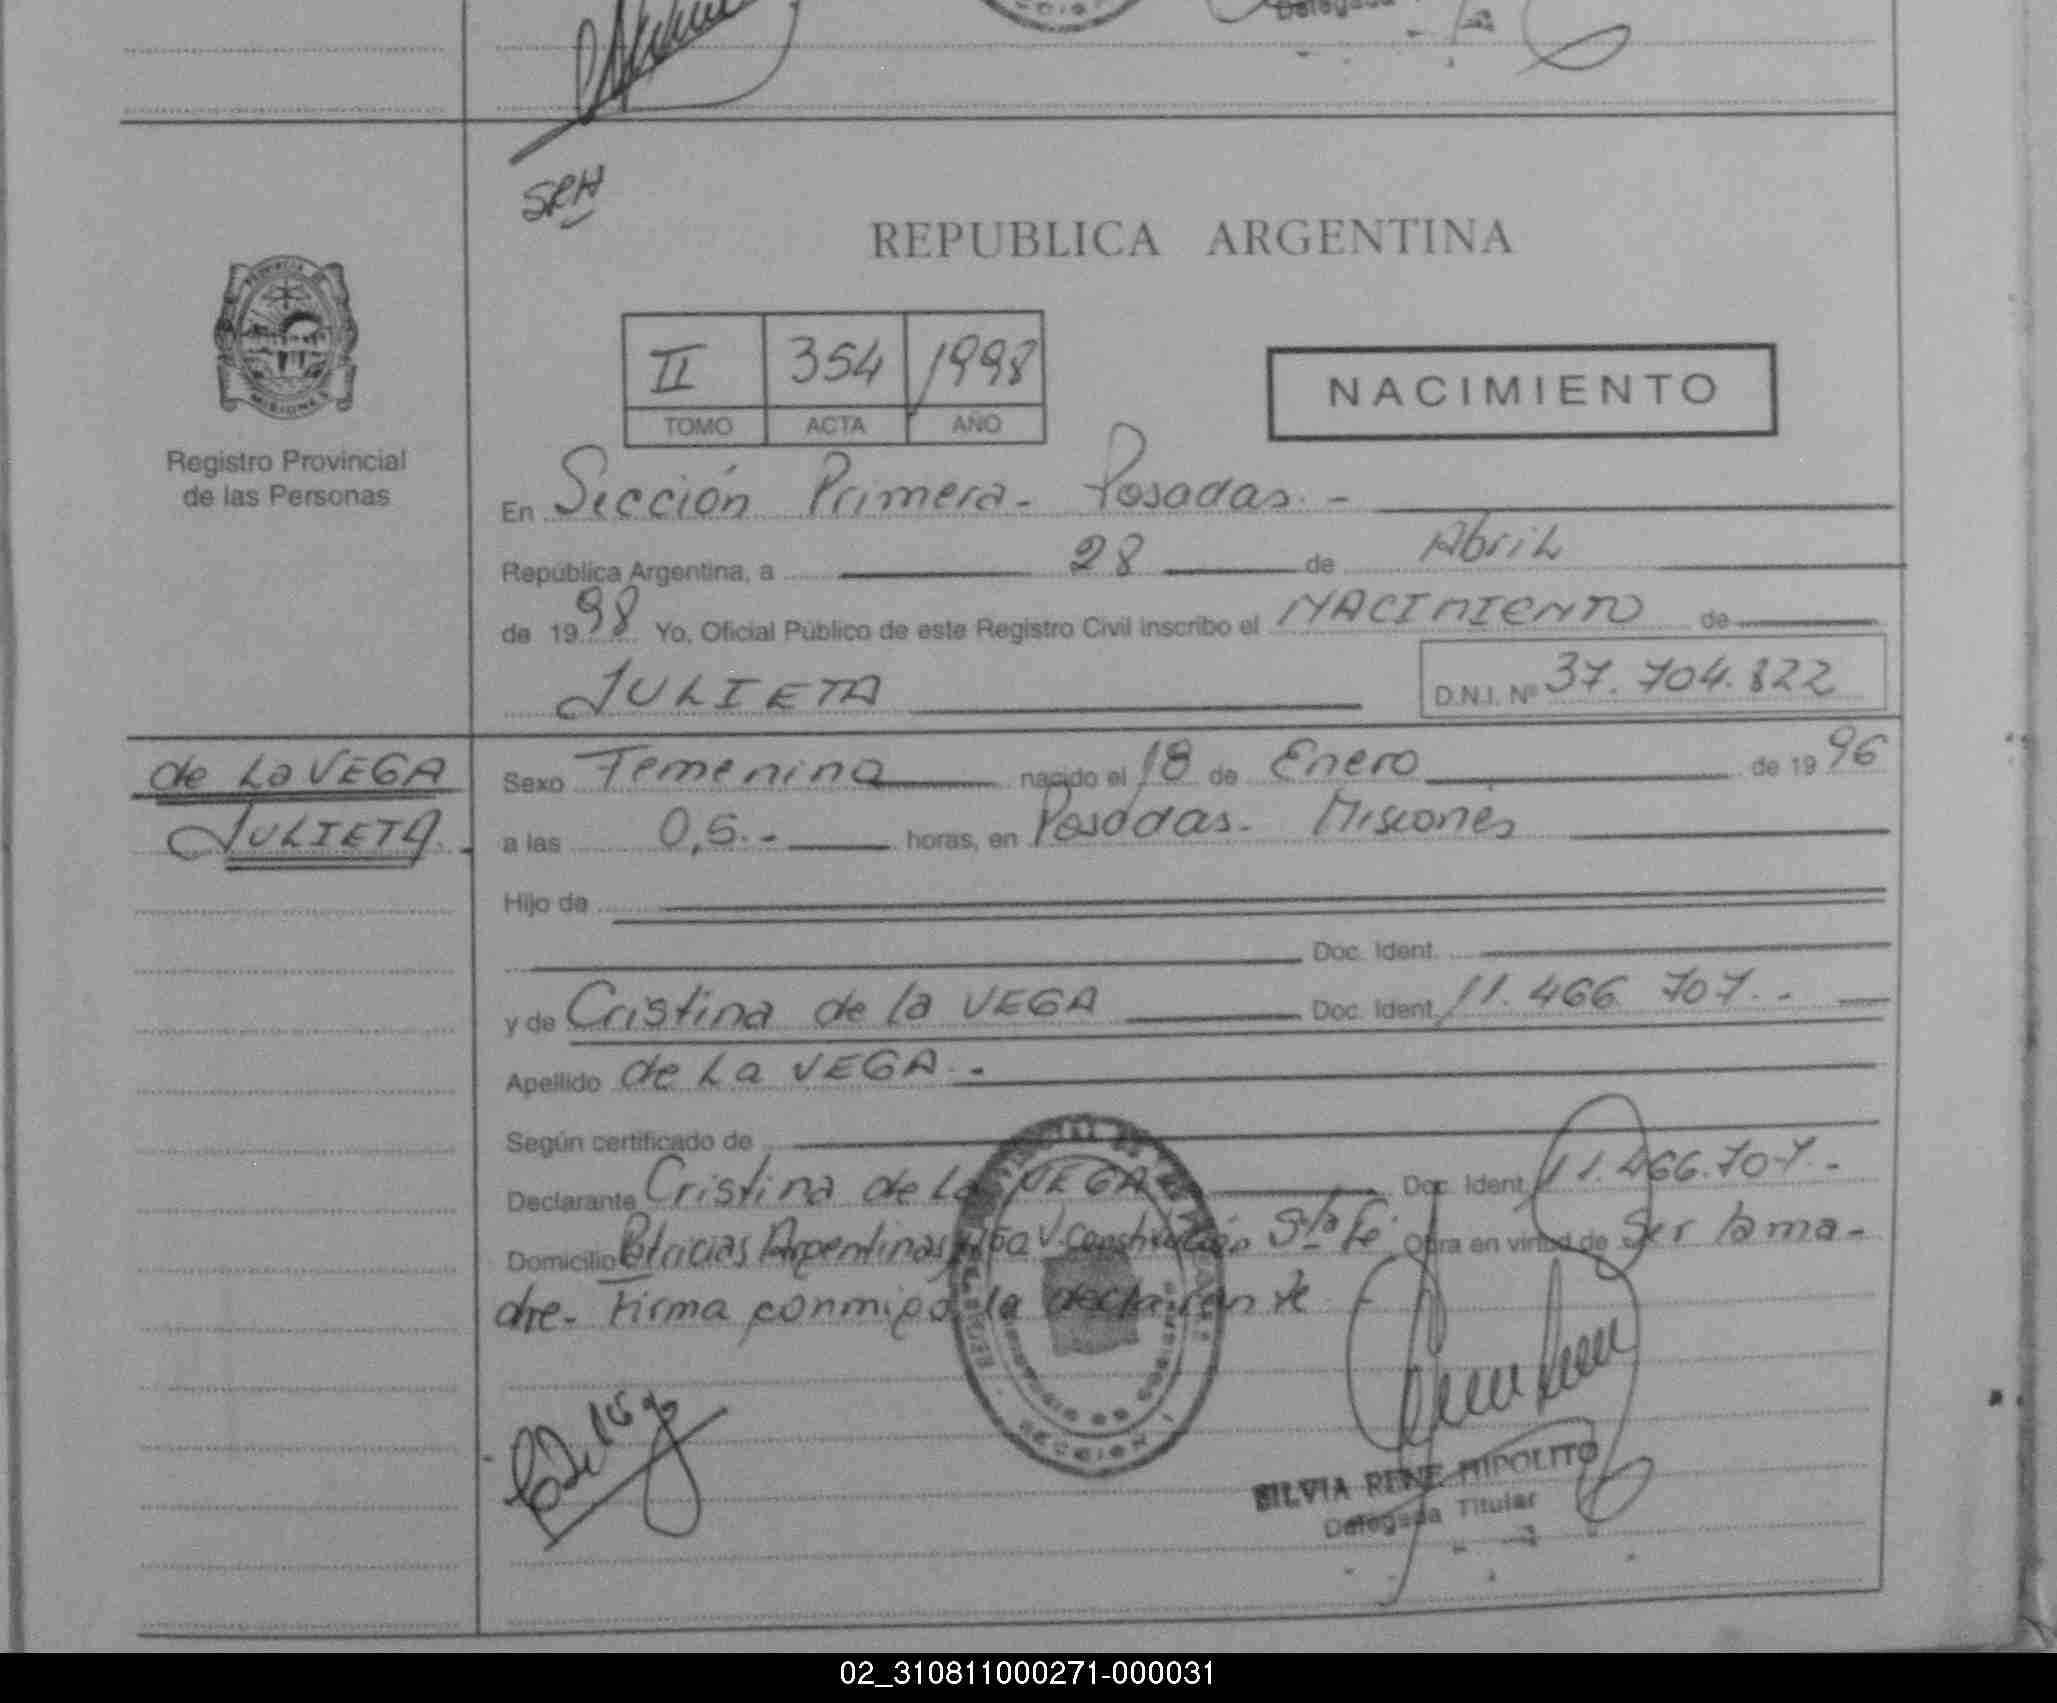 Delegada
SRH
REPUBLICA ARGENTINA
PROVINCIA
MISIONES
Registro Provincial
de las Personas
II 354 1998
TOMO ACTA AÑO
NACIMIENTO
En Sección Primera - Posadas. -
República Argentina, a 28 de Abril
de 1998 Yo, Oficial Público de este Registro Civil inscribo el NACIMIENTO de
JULIETA D.N.I. Nº 37.704.822
de La VEGA
JULIETA.
Sexo Femenino nacido el 18 de Enero de 1996
a las 0,5.- horas, en Posadas - Misiones
Hijo de
Doc. Ident.
y de Cristina de la VEGA Doc. Ident. 11.466.707.-
Apellido de La VEGA.-
Según certificado de
Declarante Cristina de La VEGA Doc. Ident. 11.466.707.-
Domicilio Patricias Argentinas V. Constitución Sta Fé Obra en virtud de Ser la ma-
dre- Firma conmigo la declarante
SECCION 1
SILVIA RENE HIPOLITO
Delegada Titular
02_310811000271-000031